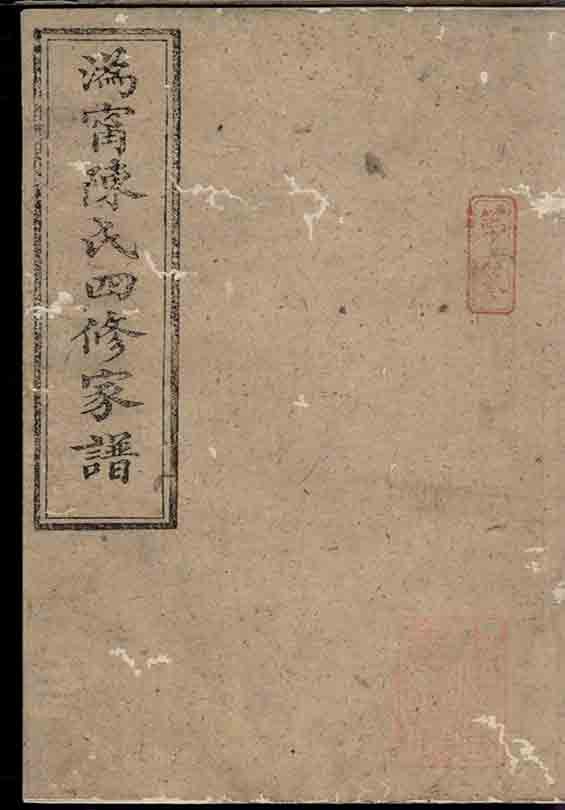 溈甯陳氏四修家譜